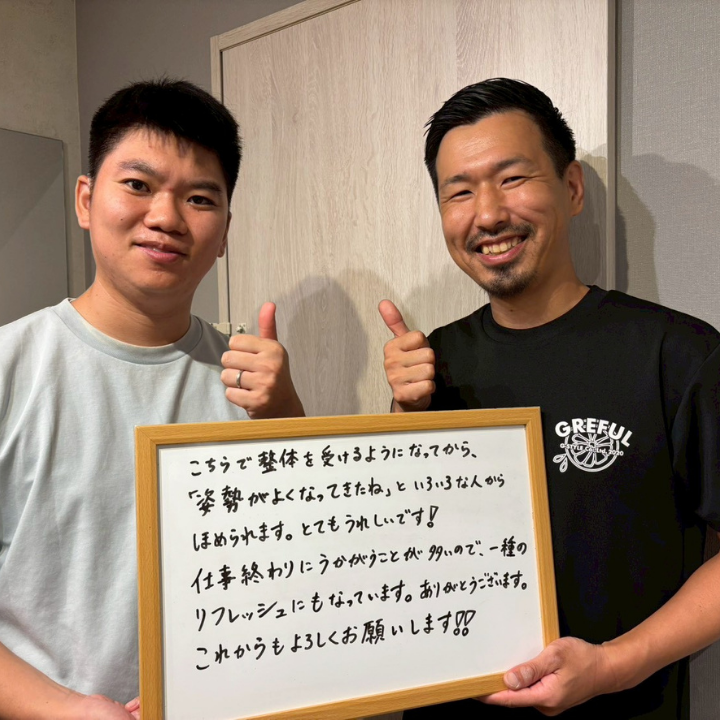 こちらで整体を受けるようになってから、
「姿勢がよくなってきたね」といろいろな人から
ほめられます。とてもうれしいです!
仕事終わりにうかがうことが多いので、一種の
リフレッシュにもなっています。ありがとうございます。
これからもよろしくお願いします!!
GREFUL